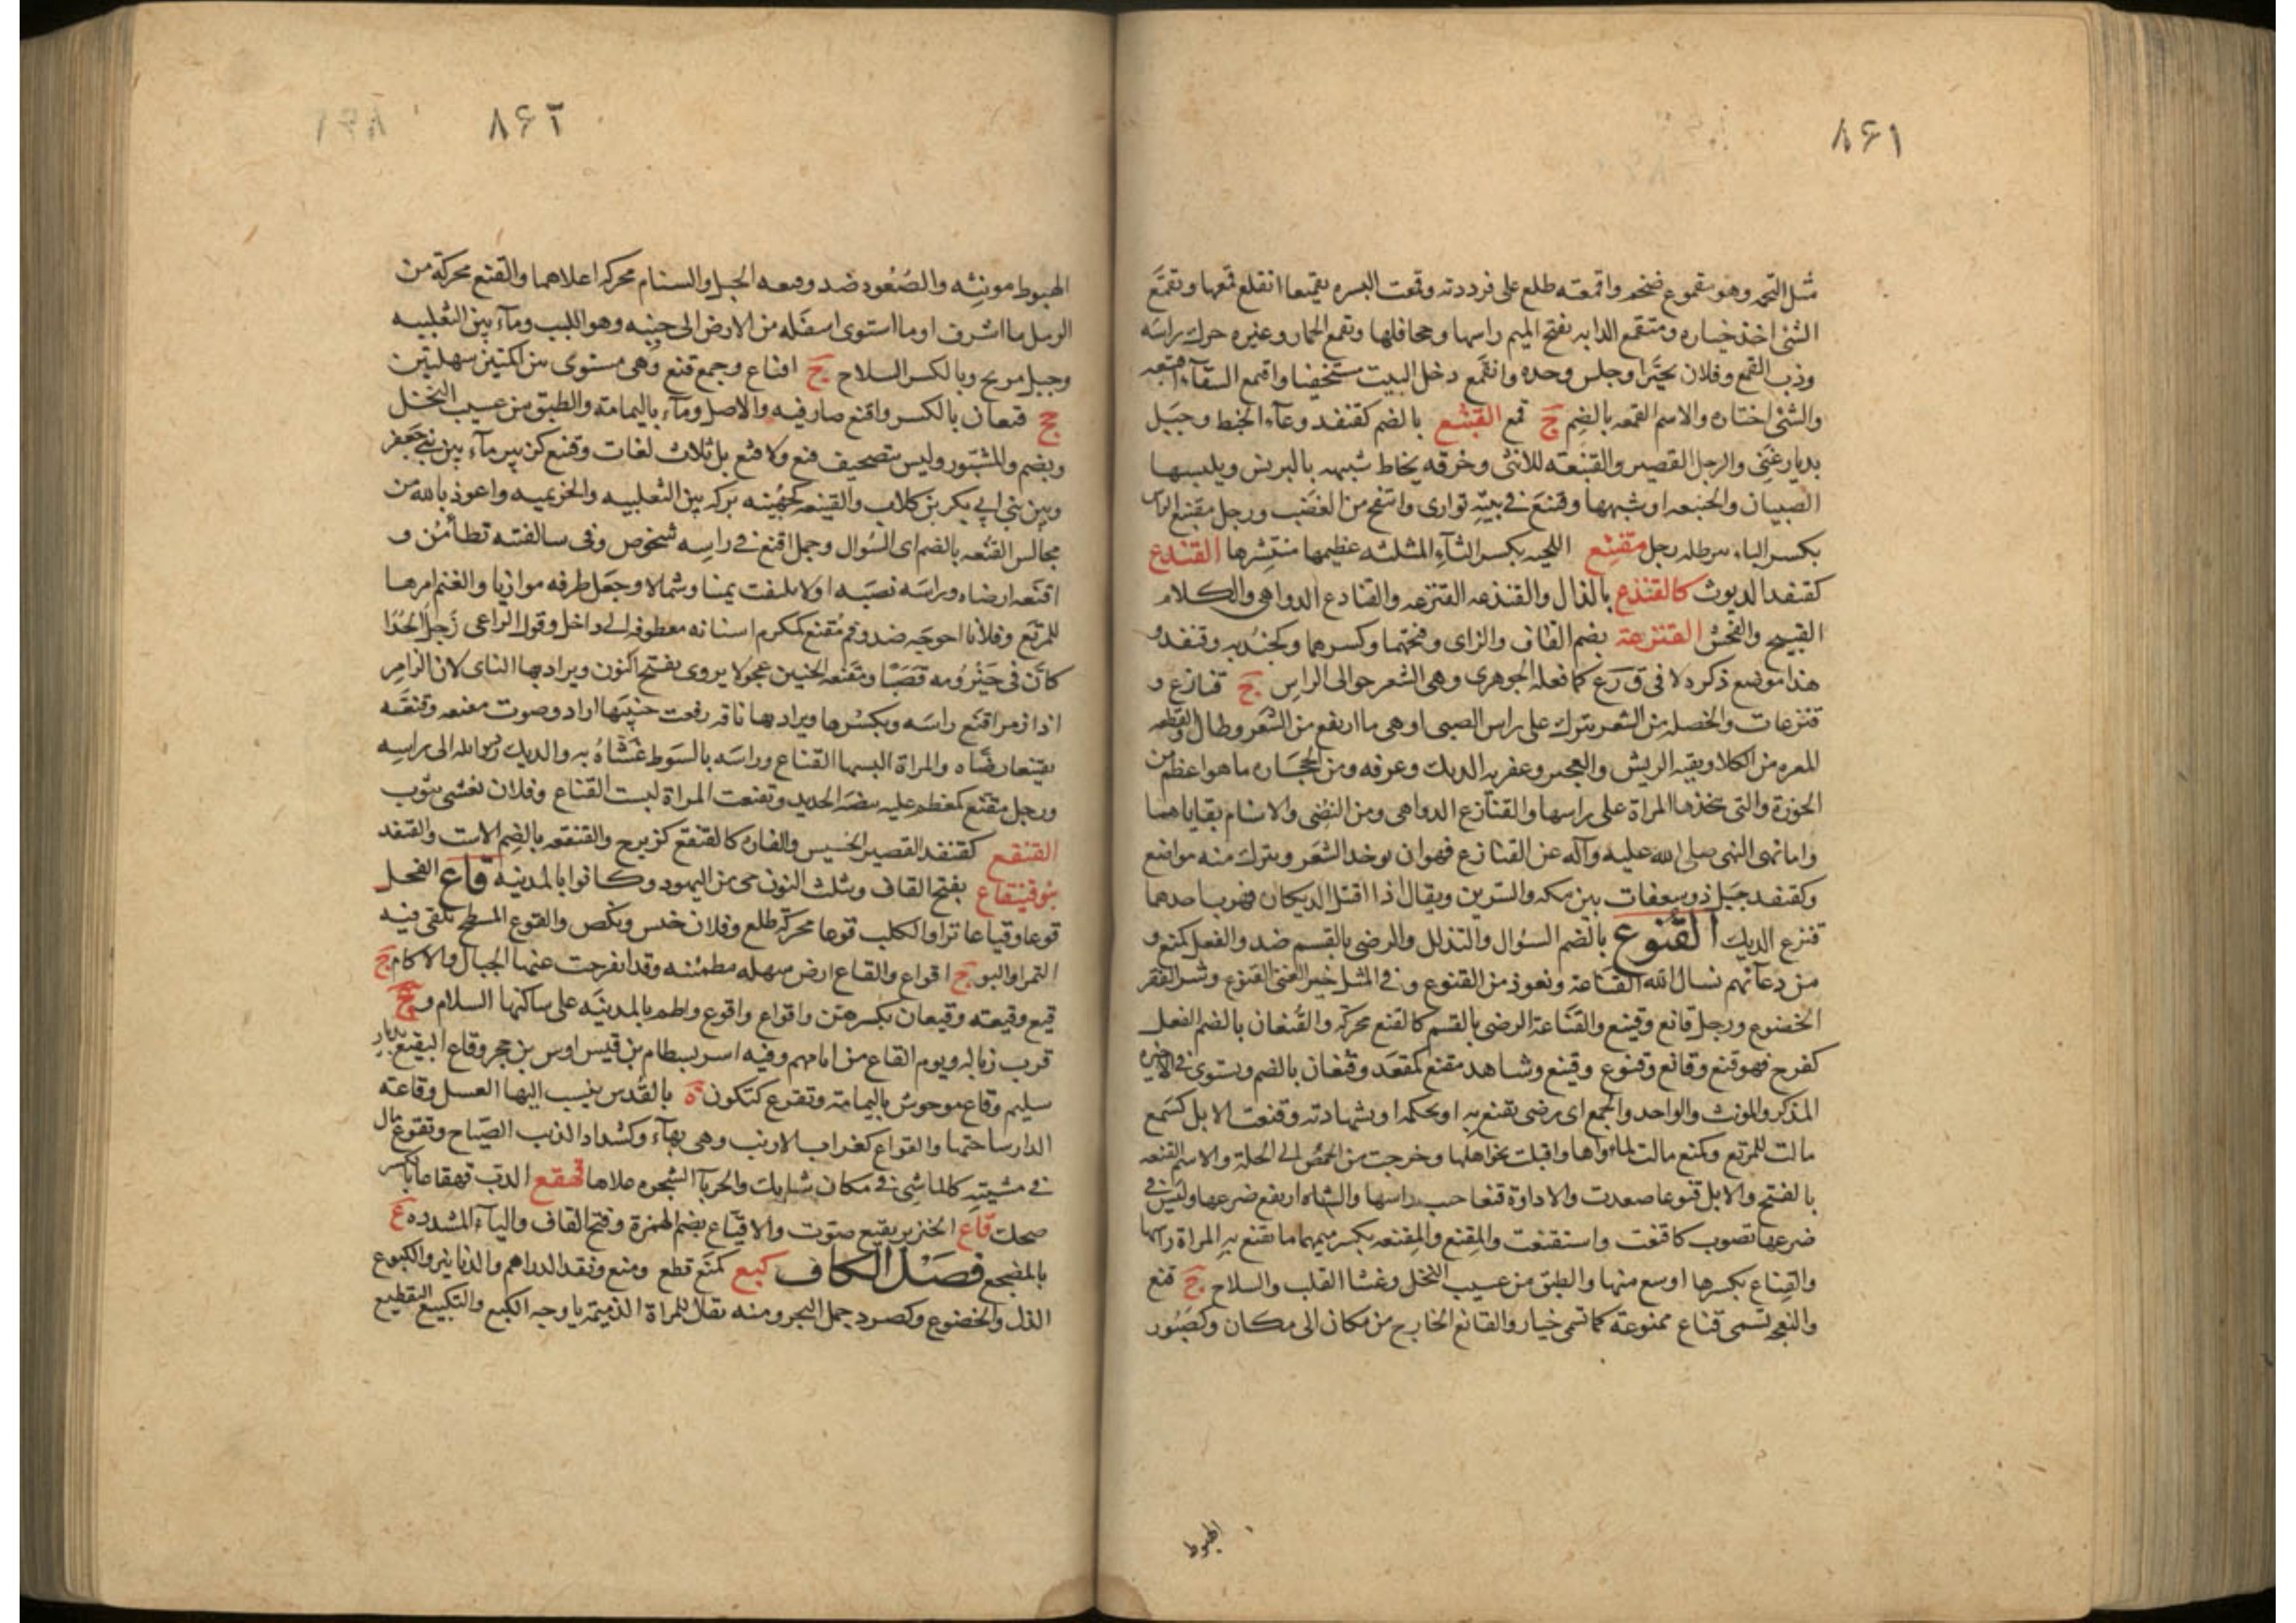 ٨٤١
مثل التخمه وهو مقموع ضخم واقمعته طلع على فرددته وقمعت البسره تقميعا انقلع قمعها وتقمع
الشئ اخذ خياره ومتقمع الدابه بفتح الميم راسها وجحافلها وتقمع الحمار وغيره حرك راسه
وذب القمع وفلان تحيّرا وجلس وحده وانقمع دخل البيت مستخفيا واقتمع السقآء اقتبعه
والشئ اختاره والاسم القمعه بالضم ج قمع القنبع بالضم كقنفد وعآء الحنط وجبل
بديار غنى والرجل القصير والقنبعه للانثى وخرقه يخاط شبيهه بالبرنس ويلبسها
الصبيان والخنبعه او شبهها وقنبع فى بيته توارى وانتفخ من الغضب ورجل مقنبع الراس
بكسر الباء رجل مقنثع اللحيه بكسر الثآء المثلثه عظيمها منتشرها القندع
كقنفد الديوث كالقنذع بالذال والقنذعه القنزعه والقنادع الدواهى والكلام
القبيح والفحش القنزعة بضم القاف والزاى وفتحهما وكسرهما وكجندبه وقنفد و
هذا موضع ذكره لا فى ق ز ع كما فعله الجوهرى وهى الشعر حوالى الراس ج قنازع و
قنزعات والخصله من الشعر تترك على راس الصبى او هى ما ارتفع من الشعر وطال والقطعه
المعره من الكلا وبقيه الريش والعجب وعفريه الديك وعرفه ومن الحجاره ما هو اعظم من
الجوزة والتى تتخذها المراة على راسها والقنازع الدواهى ومن النصى والاسنام بقاياهما
واما نهى النبى صلى الله عليه وآله عن القنازع فهو ان يوخد الشعر ويترك منه مواضع
وكقنفد جبل ذو سعفات بين مكه والسرين ويقال اذا اقتتل الديكان فهرب احدهما
قنزع الديك القنوع بالضم السؤال والتذلل والرضى بالقسم ضد والفعل كمنع و
من دعآئهم نسال الله القناعة ونعوذ من القنوع وفى المثل خير الغنى القنوع وشر الفقر
الخضوع ورجل قانع وقنيع والقناعة الرضى بالقسم كالقنع محركة والقنعان بالضم الفعل
كفرح فهو قنع وقانع وقنوع وقنيع وشاهد مقنع كمقعد وقنعان بالضم ويستوى فى الاخيره
المذكر والمونث والواحد والجمع اى رضى يقنع به او بحكمه او بشهادته وقنعت الابل كسمع
مالت للمرتع وكمنع مالت لماواها واقبلت نحو اهلها وخرجت من الحمض الى الخلة والاسم القنعه
بالفتح والابل قنوعا صعدت والاداوة قنعا خنث راسها والشاه ارتفع ضرعها وليس فى
ضرعها تصوب كاقنعت واستقنعت والمقنع والمقنعه بكسر ميمهما ما تقنع به المراة راسها
والقناع بكسرها اوسع منها والطبق من عسيب النخل وغشا القلب والسلاح ج قنع
والنعجه تسمى قناع ممنوعة كما تسمى خيار والقانع الخارج من مكان الى مكان وكصبور
الهبوط
٨٤٢
الهبوط مونثه والصعود ضد وقمعه الجبل والسنام محركه اعلاهما والقنع محركة من
الرمل ما اشرف او ما استوى اسفله من الارض الى جنبه وهو اللبب ومآء بين الثعلبيه
وجبل مربخ وبالكسر السلاح ج اقناع وجمع قنع وهى مستوى بين اكمتين سهلتين
ج قنعان بالكسر واقنع صار فيه والاصل ومآء باليمامة والطبق من عسيب النخل
ويضم والشبّور وليس بتصحيف قبع ولا قثع بل ثلاث لغات وقنع كزبير مآء بين بنى جعفر
وبين بنى ابى بكر بن كلاب والقنيعه كجهينه بركه بين الثعلبيه والخزيميه واعوذ بالله من
مجالس القنعه بالضم اى السؤال وجمل اقنع فى راسه شخوص وفى سالفته تطامن و
اقنعه ارضاه وراسه نصبه او لا يلتفت يمينا وشمالا وجعل طرفه موازيا والغنم امرها
للمرتع وفلانا احوجه ضد وفم مقنع كمكرم اسنانه معطوفه الى داخل وقول الراعى زجل الحدا
كان فى حيزومه قصبا ومقنعه الحنين عجولا يروى بفتح النون ويراد بها الناى لان الزامر
اذا زمر اقنع راسه وبكسرها ويراد بها ناقه رفعت حنينها اراد وصوت مقنعه وقنعه
تقنيعا رضاه والمراة البسها القناع وراسه بالسوط غشاه به والديك الى راسه
ورجل مقنع كمعظم عليه بيضة الحديد وتقنعت المراة لبست القناع وفلان تغشى بثوب
القنقع كقنفد القصير الخسيس والفاره كالقنقع كزبرج والقنقعه بالضم الاست والقنفد
بنو قينقاع بفتح القاف وبثلث النون حى من اليهود وكانوا بالمدينه قاع الفحل
قوعا وقياعا نزا والكلب قوعا محركة طلع وفلان خنس ونكص والقوع المسطح يلقى فيه
التمر او البر ج اقواع والقاع ارض سهله مطمئنه وقد انفرجت عنها الجبال والاكام ج
قيع وقيعه وقيعان بكسرهن واقواع واقوع واطم بالمدينه على ساكنها السلام و ع
قرب زباله ويوم القاع من ايامهم وفيه اسر بسطام بن قيس اوس بن حجر وقاع البقيع بديار
سليم وقاع موحوش باليمامة وتقوع كتكون ة بالقدس ينسب اليها العسل وقاعه
الدار ساحتها والقواع كغراب الارنب وهى بهآء وكشداد الذيب الصياح وتقوع مال
فى مشيته كالماشى فى مكان شايك والحربآ الشجره علاها قهقع الدب قهقاعا بالكسر
ضحك قاع الخنزير يقيع صوّت والاقياع بضم الهمزة وفتح القاف واليآء المشدده ع
بالمضجع فصل الكاف كبع كمنع قطع ومنع ونقد الدراهم والدنانير والكبوع
الذل والخضوع وكصرد جمل البحر ومنه يقال للمراة الذميمة يا وجه الكبع والتكبيع التقطيع